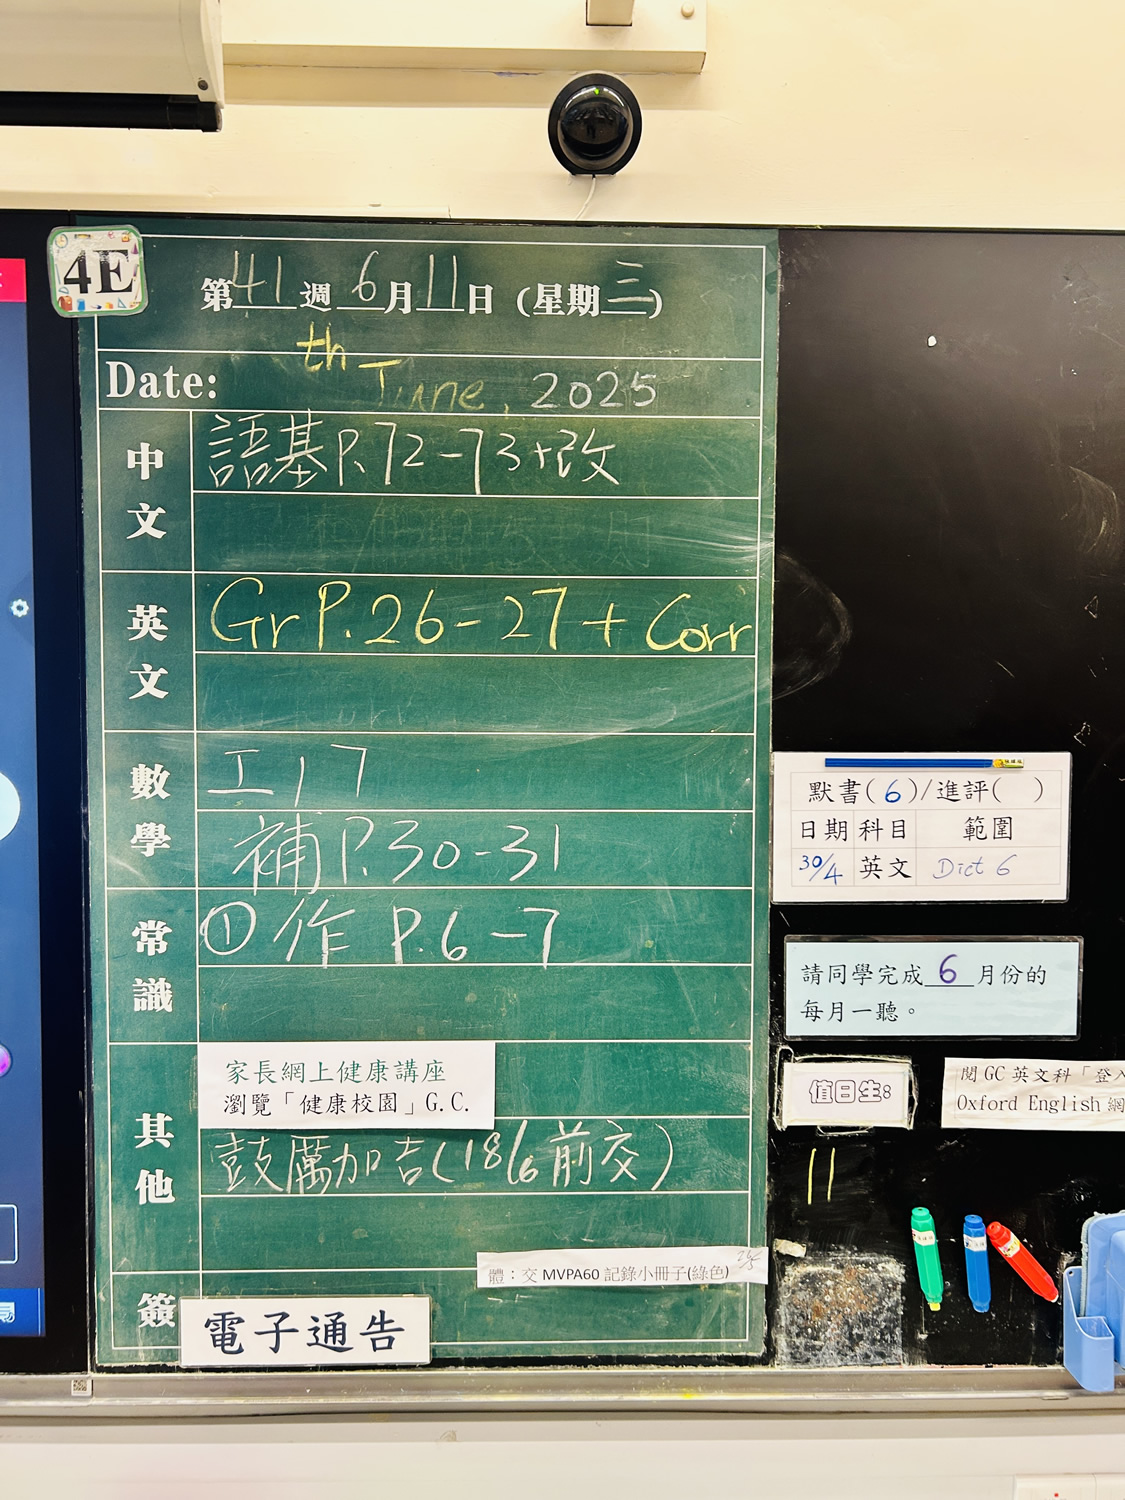 4E
第41週6月11日(星期三)
th
Date: June, 2025
中文
語基P.72-73+改
英文
Gr P.26-27 + Corr
數學
工17
補P.30-31
常識
①作 P.6-7
其他
家長網上健康講座
瀏覽「健康校園」G.C.
鼓厲加吉(18/6前交)
體：交 MVPA60 記錄小冊子(綠色)
簽
電子通告
默書(6)/進評( )
日期 科目 範圍
30/4 英文 Dict 6
請同學完成6月份的
每月一聽。
值日生:
11
閱 GC 英文科「登入
Oxford English 網